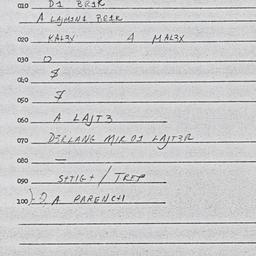 010 D1 BE1R
A LAJMIN1 BE1R
020 KAL3X 4 MAL3X
030 O
040 $
050 7
060 A LAJT3
070 D3RLANG MIR 01 LAJT3R
080 —
090 S+TIG+ / TREP
100 A PARENC+1